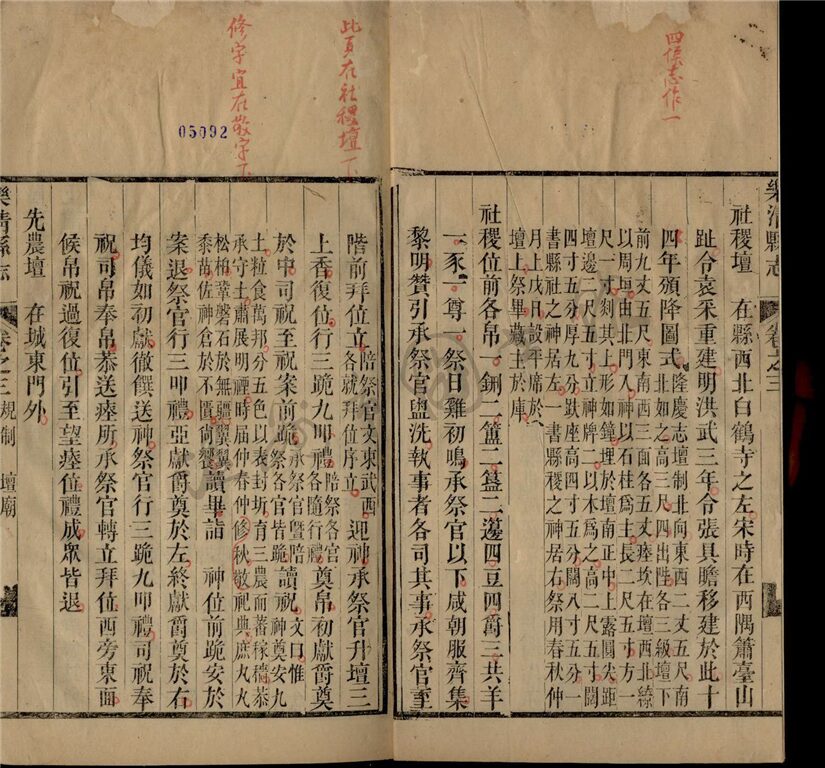 四俱志作一
樂清縣志
卷之三
社稷壇　在縣西北白鶴寺之左宋時在西隅簫臺山
趾令袁采重建明洪武三年令張具瞻移建於此十
四年頒降圖式隆慶志壇制北向東西二丈五尺南
北如之高三尺四出陛各三級壇下
前九丈五尺東南西三面各五丈瘞坎在壇西北繚
以周垣由北門入神以石柱爲主長二尺五寸方一
尺一寸剡其上形如鐘埋於壇南正中上露圓尖距
壇邊二尺五寸立神牌二以木爲之高二尺五寸闊
四寸五分厚九分趺座高四寸五分闊八寸五分一
書縣社之神居左一書縣稷之神居右祭用春秋仲
月上戊日設平席於
壇上祭畢藏主於庫
社稷位前各帛一鉶二簠二簋二籩四豆四爵三共羊
一豕一尊一祭日雞初鳴承祭官以下咸朝服齊集
黎明贊引承祭官盥洗執事者各司其事承祭官至
此頁在社稷壇下
修字宜在敬字下
05092
階前拜位立陪祭官文東武西
各就拜位序立迎神承祭官升壇三
上香復位行三跪九叩禮陪祭各官
各隨行禮奠帛初獻爵奠
於中司祝至祝案前跪承祭官曁陪
祭各官皆跪讀祝文曰惟
神奠安九
土粒食萬邦分五色以表封圻育三農而蕃稼穡恭
承守土肅展明禋時届仲春仲修秋敬祀典庶丸丸
松柏鞏磐石於無疆翼翼
黍苗佐神倉於不匱尙饗讀畢詣　神位前跪安於
案退祭官行三叩禮亞獻爵奠於左終獻爵奠於右
均儀如初獻徹饌送神祭官行三跪九叩禮司祝奉
祝司帛奉帛恭送瘞所承祭官轉立拜位西旁東面
候帛祝過復位引至望瘞位禮成眾皆退
先農壇　在城東門外
樂清縣志
卷之三
規制
壇廟